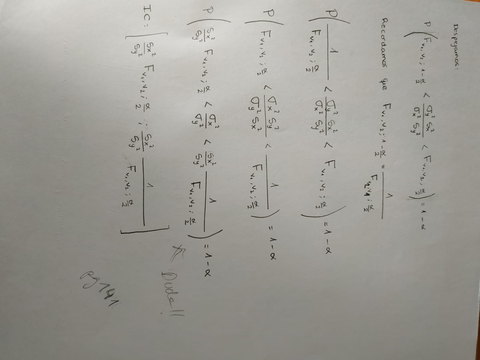 Despejamos:
P( F_{v₁,v₂; 1-α/2} < σy² Sx² / σx² Sy² < F_{v₁,v₂; α/2} ) = 1-α
Recordamos que F_{v₁,v₂; 1-α/2} = 1 / F_{v₂,v₁; α/2}
P( 1 / F_{v₂,v₁; α/2} < σy² Sx² / σx² Sy² < F_{v₁,v₂; α/2} ) = 1-α
P( F_{v₂,v₁; α/2} < σx² Sy² / σy² Sx² < 1 / F_{v₁,v₂; α/2} ) = 1-α
P( Sx²/Sy² F_{v₂,v₁; α/2} < σx²/σy² < Sx²/Sy² 1 / F_{v₁,v₂; α/2} ) = 1-α
IC: [ Sx²/Sy² F_{v₂,v₁; α/2} ; Sx²/Sy² 1 / F_{v₁,v₂; α/2} ]
* Duda!!
pg 141